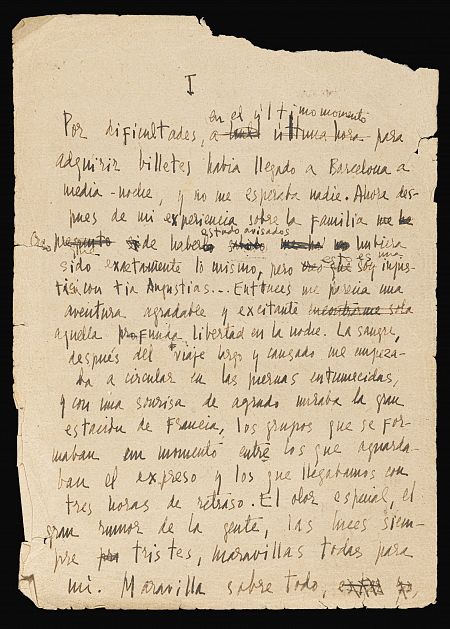 I
en el último momento
Por dificultades, a última hora para
adquirir billetes había llegado a Barcelona a
media-noche, y no me esperaba nadie. Ahora des-
pues de mi experiencia sobre la familia me he
pregunto si de haber estado avisados hubiera
sido exactamente lo mismo, pero creo que soy injus-
ticia con tia Angustias... Entonces me parecia una
aventura agradable y excitante encontrarme sola
aquella profunda libertad en la noche. La sangre,
después del viaje largo y cansado me empeza-
ba a circular en las piernas entumecidas,
y con una sonrisa de agrado miraba la gran
estación de Francia, los grupos que se for-
maban en momento entre los que aguarda-
ban el expreso y los que llegabamos con
tres horas de retraso. El olor especial, el
gran rumor de la gente, las luces siem-
pre tristes, maravillas todas para
mi. Maravilla sobre todo,